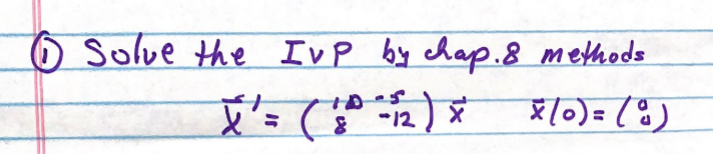 ① Solve the IVP by chap. 8 methods
x⃗' = (10 -5
8 -12) x⃗ x⃗(0) = (0
0)